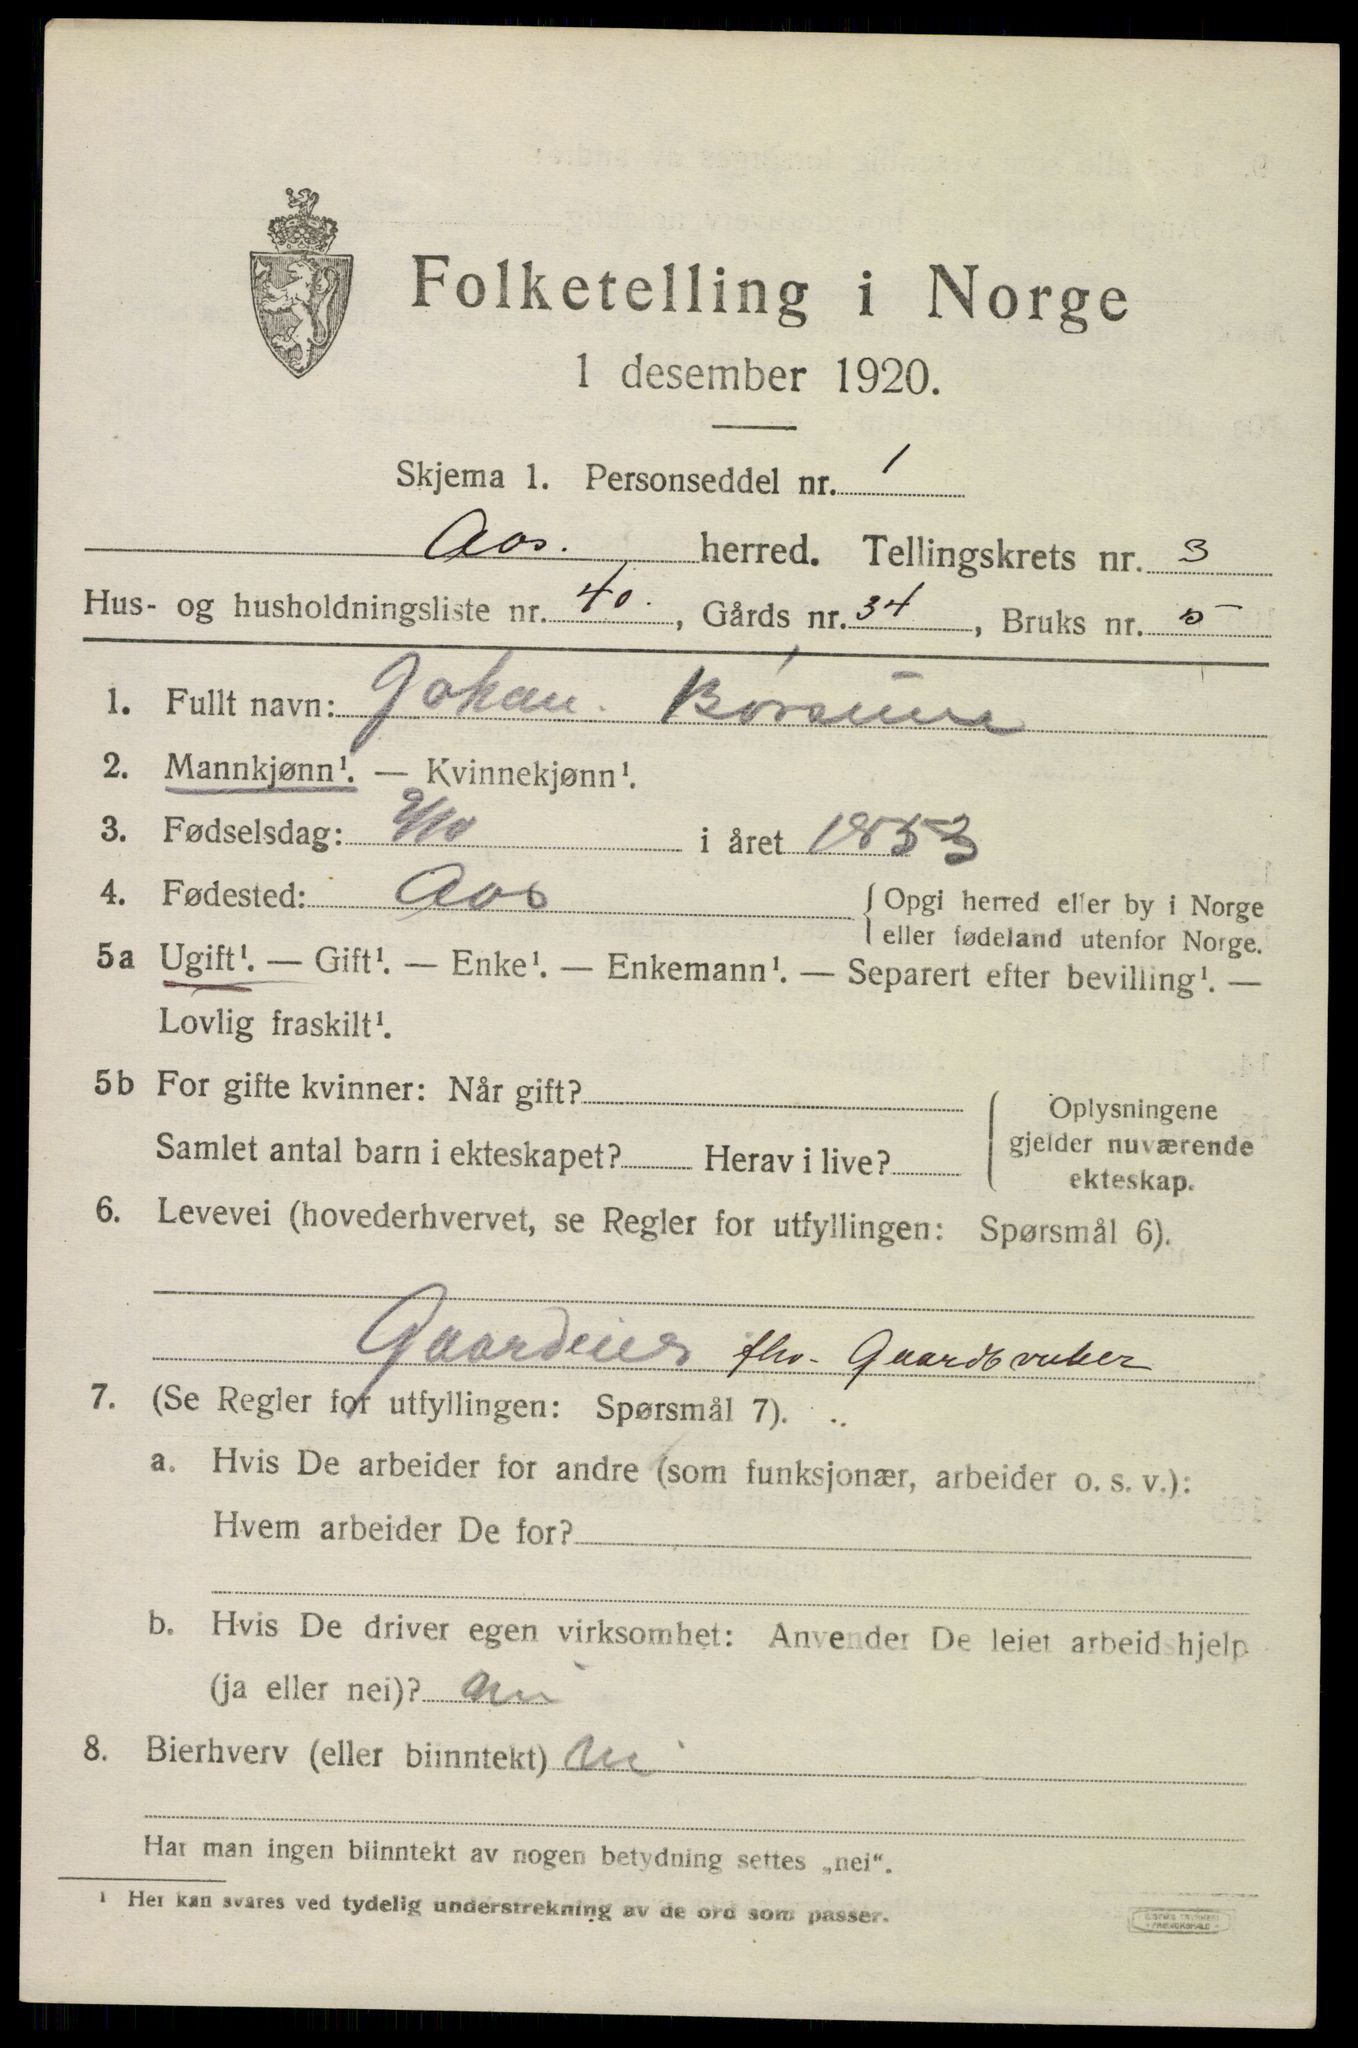 Folketelling i Norge
1 desember 1920.
Skjema 1. Personseddel nr. 1
Aas. herred. Tellingskrets nr. 3
Hus- og husholdningsliste nr. 40. , Gårds nr. 34 , Bruks nr. 5
1. Fullt navn: Johan
2. Mannkjønn¹. — Kvinnekjønn¹.
3. Fødselsdag: 9/10 i året 1853
4. Fødested: Aas { Opgi herred eller by i Norge
eller fødeland utenfor Norge.
5a Ugift¹. — Gift¹. — Enke¹. — Enkemann¹. — Separert efter bevilling¹. —
Lovlig fraskilt¹.
5b For gifte kvinner: Når gift?
Samlet antal barn i ekteskapet? Herav i live?
{ Oplysningene
gjelder nuværende
ekteskap.
6. Levevei (hovederhvervet, se Regler for utfyllingen: Spørsmål 6).
Gaardeier fhv. Gaardbruker
7. (Se Regler for utfyllingen: Spørsmål 7).
a. Hvis De arbeider for andre (som funksjonær, arbeider o. s. v.):
Hvem arbeider De for?
b. Hvis De driver egen virksomhet: Anvender De leiet arbeidshjelp
(ja eller nei)? nei
8. Bierhverv (eller biinntekt) nei
Har man ingen biinntekt av nogen betydning settes „nei“.
¹ Her kan svares ved tydelig understrekning av de ord som passer.